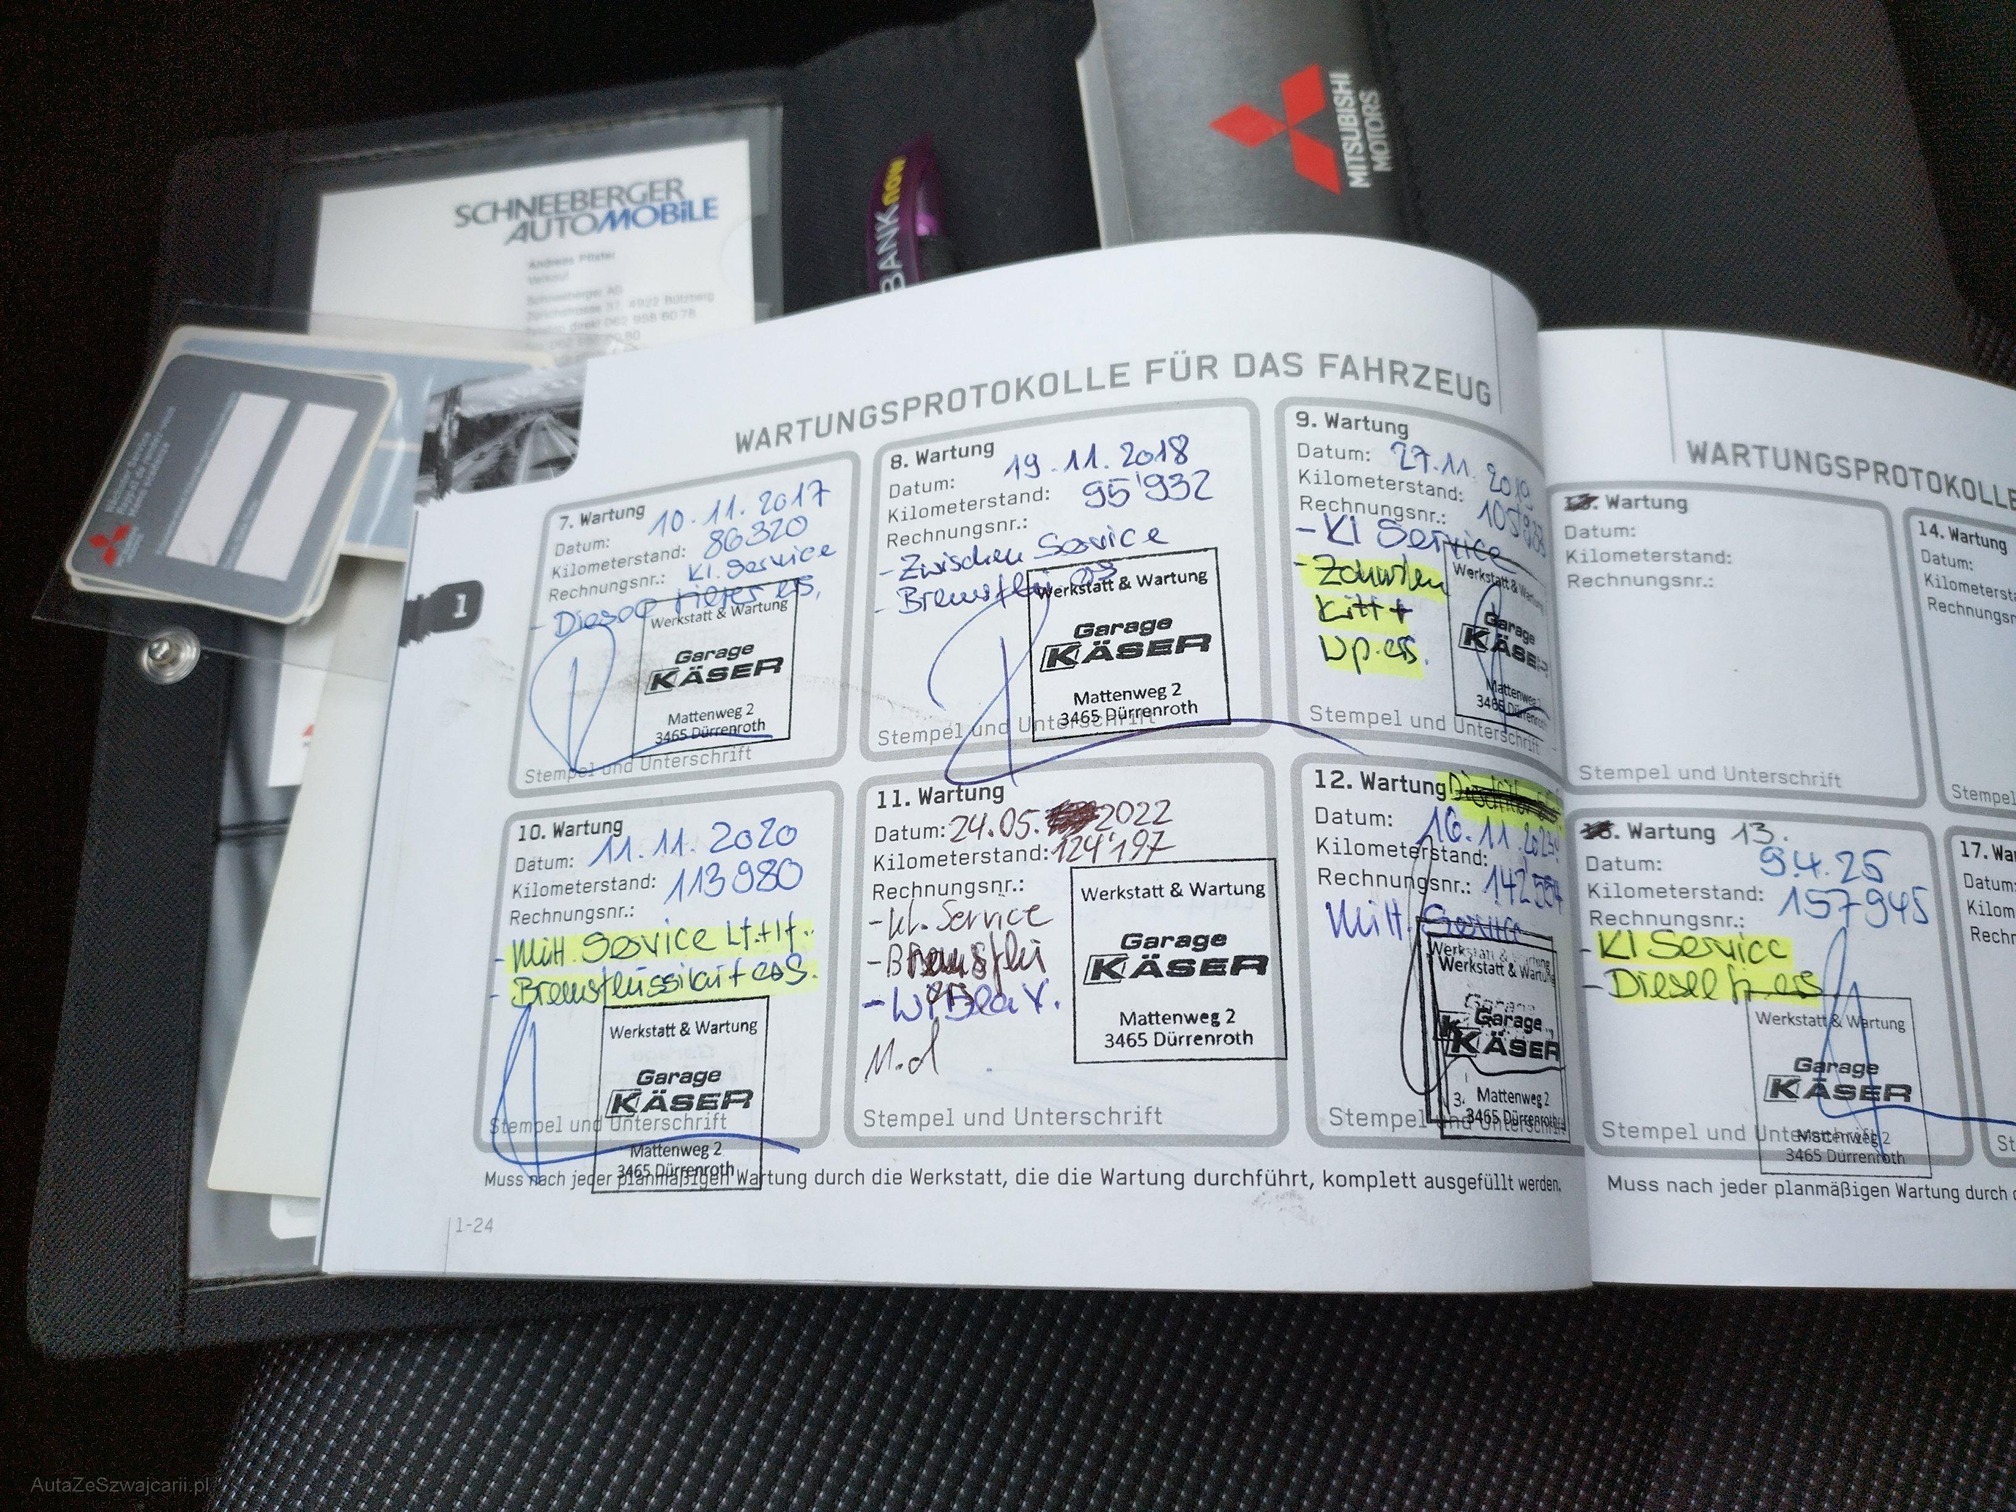 SCHNEEBERGER
AUTOMOBILE
Andreas Pfister
Verkauf
Schneeberger AG
BANKnow
MITSUBISHI
MOTORS
WARTUNGSPROTOKOLLE FÜR DAS FAHRZEUG
7. Wartung
Datum: 10.11.2017
Kilometerstand: 86320
Rechnungsnr.: Kl. Service
Werkstatt & Wartung
Garage
KÄSER
Mattenweg 2
3465 Dürrenroth
Stempel und Unterschrift
8. Wartung
Datum: 19.11.2018
Kilometerstand: 95'932
Rechnungsnr.:
- Zwischen Service
Werkstatt & Wartung
Garage
KÄSER
Mattenweg 2
3465 Dürrenroth
Stempel und Unterschrift
9. Wartung
Datum: 27.11.2019
Kilometerstand:
Rechnungsnr.:
- Kl Service
Kitt +
Wp. ers.
Werkstatt & Wartung
Garage
KÄSER
Mattenweg 2
3465 Dürrenroth
Stempel und Unterschrift
10. Wartung
Datum: 11.11.2020
Kilometerstand: 113980
Rechnungsnr.:
- Mitt. Service
- Bremsflüssikeit ers.
Werkstatt & Wartung
Garage
KÄSER
Mattenweg 2
3465 Dürrenroth
Stempel und Unterschrift
11. Wartung
Datum: 24.05. 2022
Kilometerstand: 124'197
Rechnungsnr.:
- Kl. Service
Werkstatt & Wartung
Garage
KÄSER
Mattenweg 2
3465 Dürrenroth
Stempel und Unterschrift
12. Wartung
Datum: 16.11
Kilometerstand:
Rechnungsnr.:
Mitt. Service
Werkstatt & Wartung
Garage
KÄSER
Mattenweg 2
3465 Dürrenroth
Stempel und Unterschrift
Muss nach jeder planmäßigen Wartung durch die Werkstatt, die die Wartung durchführt, komplett ausgefüllt werden.
1-24
1
WARTUNGSPROTOKOLLE
Wartung
Datum:
Kilometerstand:
Rechnungsnr.:
Stempel und Unterschrift
14. Wartung
Datum:
Kilometerst
Rechnungsnr
Stempel
Wartung 13.
Datum: 9.4.25
Kilometerstand: 157945
Rechnungsnr.:
- Kl Service
- Diesel
Werkstatt & Wartung
Garage
KÄSER
Mattenweg 2
3465 Dürrenroth
Stempel und Unterschrift
17. Wa
Datum:
Kilom
Rechn
St
Muss nach jeder planmäßigen Wartung durch
AutaZeSzwajcarii.pl